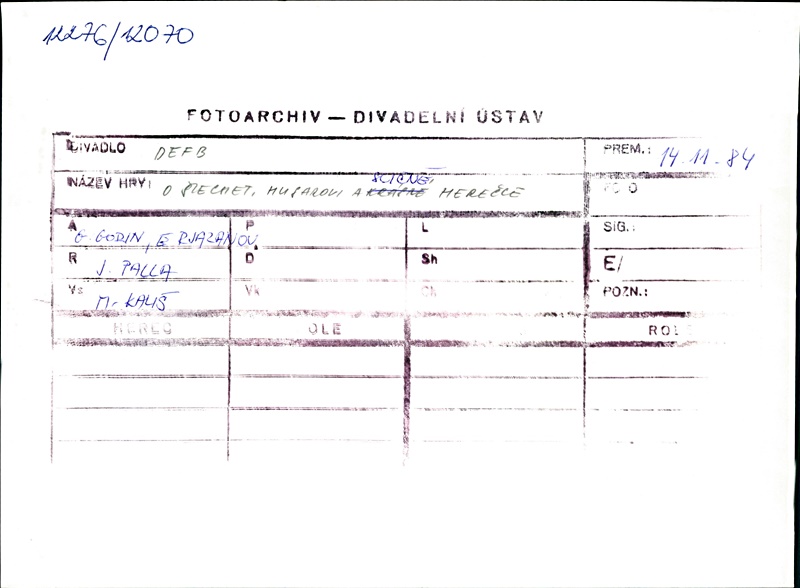 12276/12070
FOTOARCHIV — DIVADELNÍ ÚSTAV
DIVADLO DEFB PREM.: 14.11.84
NÁZEV HRY: O HUSAROVI A HEREČCE
A G. GORIN, E RJAZANOV P L SIG.:
R J. PALLA D Sh E/
Vs M. KALIŠ Vk Ch POZN.:
HEREC OLE ROL